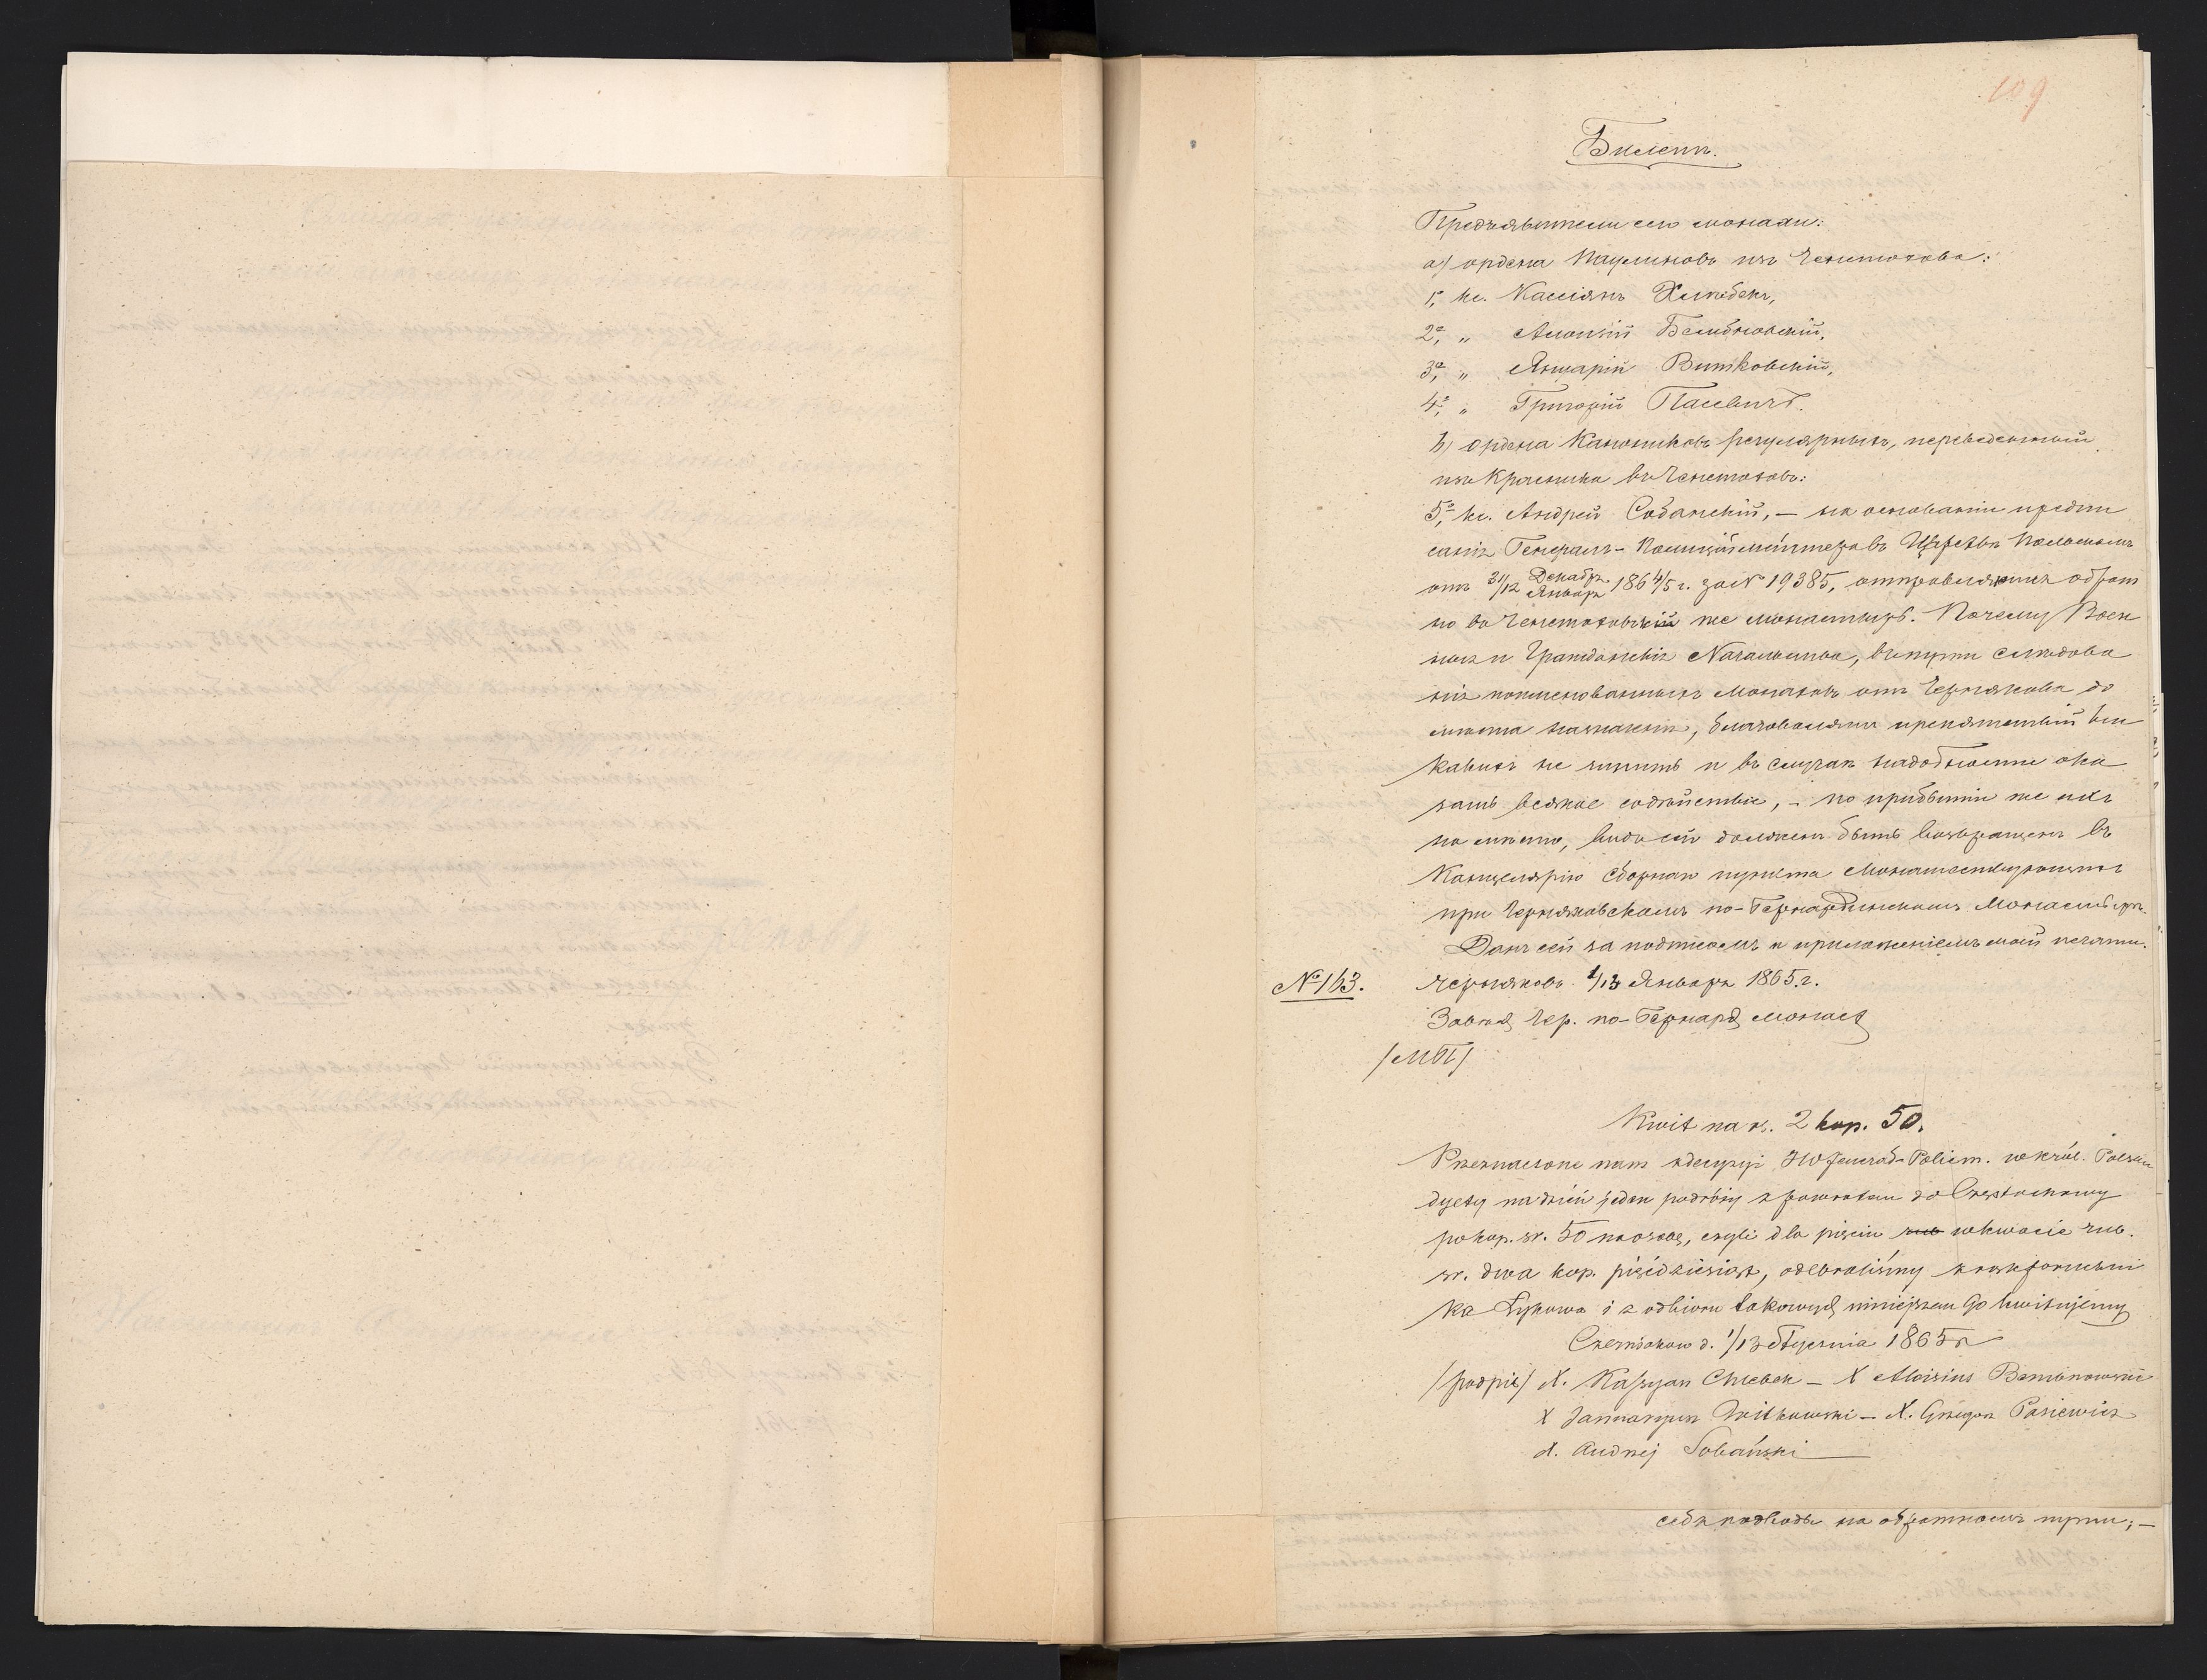 109
Билетъ.
Предъявители сего монахи:
а) ордена Паулиновъ изъ Ченстохова:
1, кс. Кассіянъ Хлѣбекъ,
2, „ Алоизій Бембновскій,
3, „ Януарій Витковскій,
4, „ Григорій Пасевичъ.
b) ордена Канониковъ регулярныхъ, переведенный
изъ Красника въ Ченстоховъ:
5, кс. Андрей Собанскій, — на основаніи предпи
санія Генералъ-Полиціймейстера въ Царствѣ Польскомъ
отъ 31/12 Декабря/Января 1864/5 г. за № 19385, отправляются обрат
но въ Ченстоховскій же монастырь. Почему Воен
ныя и Гражданскія Начальства, въ пути слѣдова
нія поименованныхъ монаховъ отъ Чернякова до
мѣста назначенія, благоволятъ препятствій ни
какихъ не чинить и въ случаѣ надобности ока
зать всякое содѣйствіе, — по прибытіи же ихъ
на мѣсто, видъ сей долженъ быть возвращенъ въ
Канцелярію Сборнаго пункта Монашествующихъ
при Черняковскомъ по-Бернардинскомъ Монастырѣ.
Данъ сей за подписомъ и приложеніемъ моей печати.
№ 163. Черняковъ 1/13 Января 1865 г.
Завѣд. Чер. по-Бернард. Монаст.
/МП/
Kwit na rs. 2 kop. 50.
Przeznaczone nam z decyzyi JW Jenerał-Policm. w Król. Polskm
dyety na dzień jeden podróży z powrotem do Częstochowy
po kop. sr. 50 na osobę, czyli dla pięciu rub w kwocie rub.
sr. dwa kop. pięćdziesiąt, odebraliśmy
ka Łykowa i z odbioru takowych niniejszem Go kwitujemy
Czerniaków d. 1/13 Stycznia 1865 r
/podpis/ X. Kassyan Chlebek — X Aloisius Bembnowski
X Januaryus Witkowski — X. Grzegorz Pasiewicz
X. Andrzej Sobański
себѣ подводъ на обратномъ пути; —